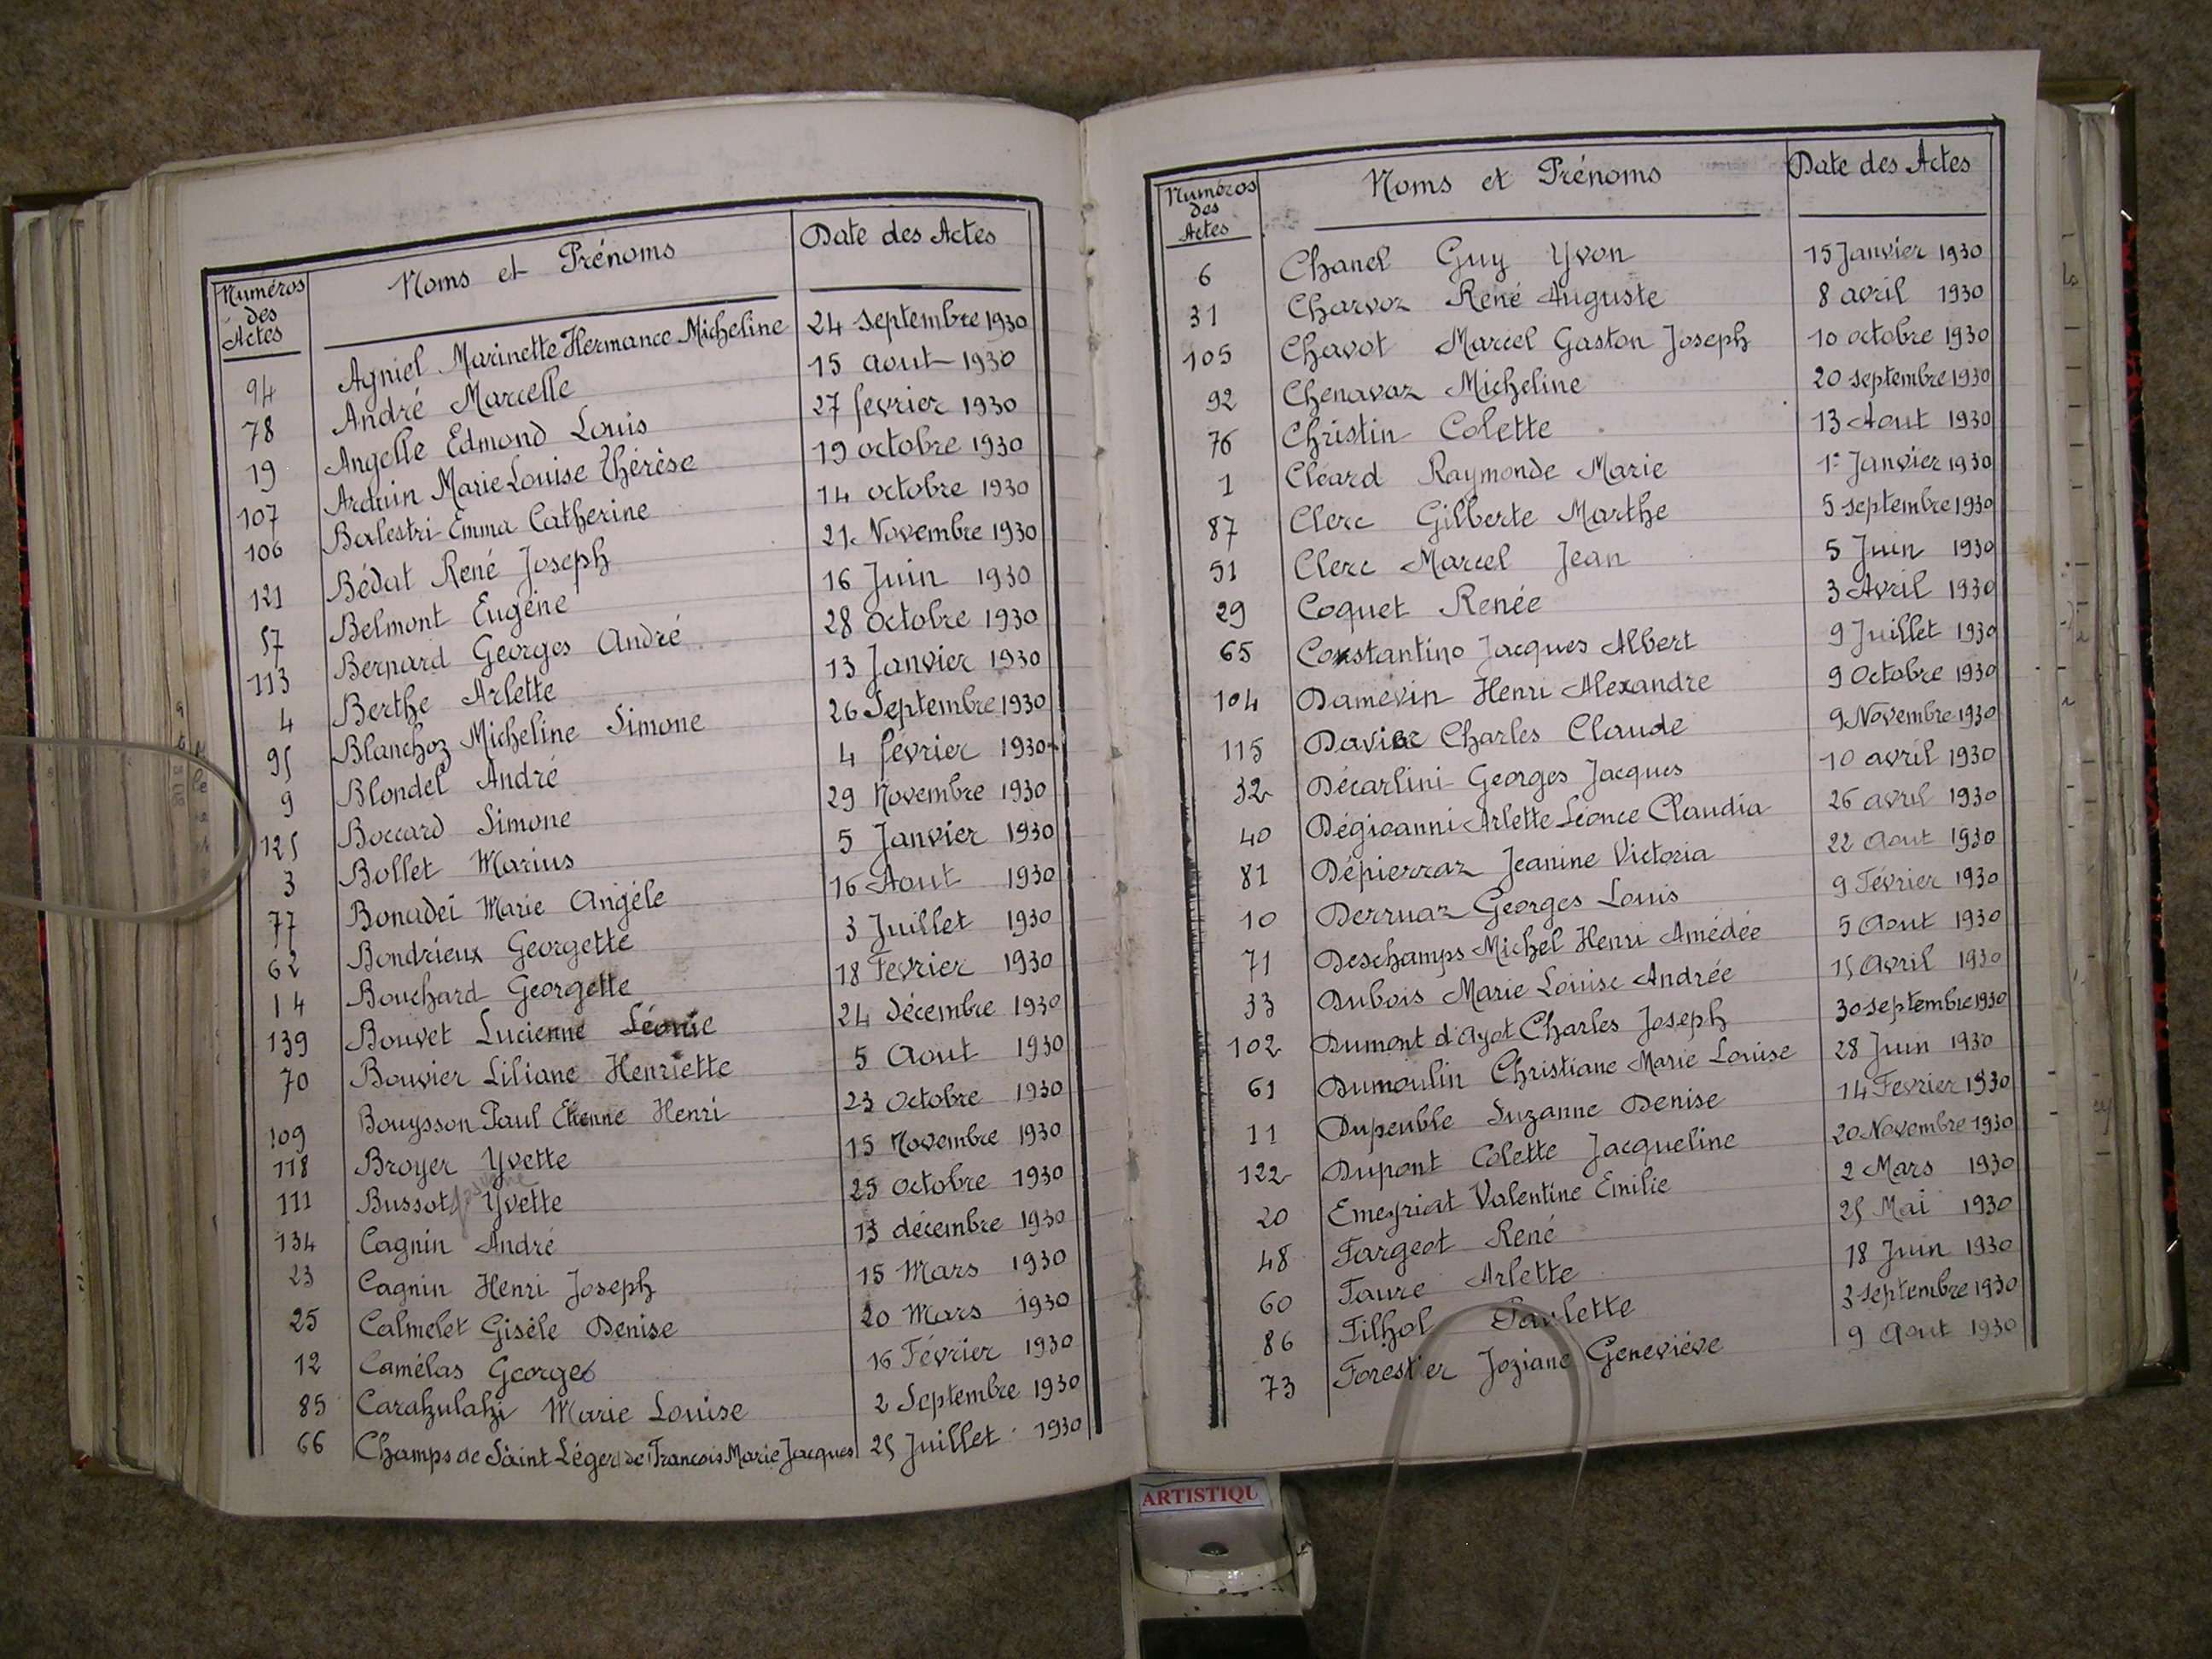 Numéros des Actes Noms et Prénoms Date des Actes
94 Agniel Marinette Hermance Micheline 24 septembre 1930
78 André Marcelle 15 aout 1930
19 Angelle Edmond Louis 27 fevrier 1930
107 Arduin Marie Louise Thérèse 19 octobre 1930
106 Balestri Emma Catherine 14 octobre 1930
121 Bédat René Joseph 21 Novembre 1930
57 Belmont Eugène 16 Juin 1930
113 Bernard Georges André 28 Octobre 1930
4 Berthe Arlette 13 Janvier 1930
95 Blanchoz Micheline Simone 26 Septembre 1930
9 Blondel André 4 février 1930
125 Boccard Simone 29 Novembre 1930
3 Bollet Marius 5 Janvier 1930
77 Bonadei Marie Angèle 16 Aout 1930
62 Bondrieux Georgette 3 Juillet 1930
14 Bouchard Georgette 18 Fevrier 1930
139 Bouvet Lucienne Léonie 24 décembre 1930
70 Bouvier Liliane Henriette 5 Aout 1930
109 Bouysson Paul Etienne Henri 23 Octobre 1930
118 Broyer Yvette 15 Novembre 1930
111 Bussot Yvette 25 octobre 1930
134 Cagnin André 13 décembre 1930
23 Cagnin Henri Joseph 15 Mars 1930
25 Calmelet Gisèle Denise 20 Mars 1930
12 Camélas Georges 16 Février 1930
85 Carahulahi Marie Louise 2 Septembre 1930
66 Champs de Saint Léger (de) Francois Marie Jacques 25 Juillet 1930
Numéros des Actes Noms et Prénoms Date des Actes
6 Chanel Guy Yvon 15 Janvier 1930
31 Charvoz René Auguste 8 avril 1930
105 Chavot Marcel Gaston Joseph 10 octobre 1930
92 Chenavaz Micheline 20 septembre 1930
76 Christin Colette 13 Aout 1930
1 Cléard Raymonde Marie 1er Janvier 1930
87 Clerc Gilberte Marthe 5 septembre 1930
51 Clerc Marcel Jean 5 Juin 1930
29 Coquet Renée 3 Avril 1930
65 Constantino Jacques Albert 9 Juillet 1930
104 Damevin Henri Alexandre 9 Octobre 1930
115 Davier Charles Claude 9 Novembre 1930
32 Décarlini Georges Jacques 10 avril 1930
40 Dégioanni Arlette Léonce Claudia 26 avril 1930
81 Dépierraz Jeanine Victoria 22 Aout 1930
10 Derruaz Georges Louis 9 Février 1930
71 Deschamps Michel Henri Amédée 5 Aout 1930
33 Dubois Marie Louise Andrée 15 Avril 1930
102 Dumont d'Ayot Charles Joseph 30 septembre 1930
61 Dumoulin Christiane Marie Louise 28 Juin 1930
11 Dupeuble Suzanne Denise 14 Fevrier 1930
122 Dupont Colette Jacqueline 20 Novembre 1930
20 Emeyriat Valentine Emilie 2 Mars 1930
48 Fargeot René 25 Mai 1930
60 Faure Arlette 18 Juin 1930
86 Filhol Paulette 3 septembre 1930
73 Forestier Joziane Geneviève 9 Aout 1930
ARTISTIQU